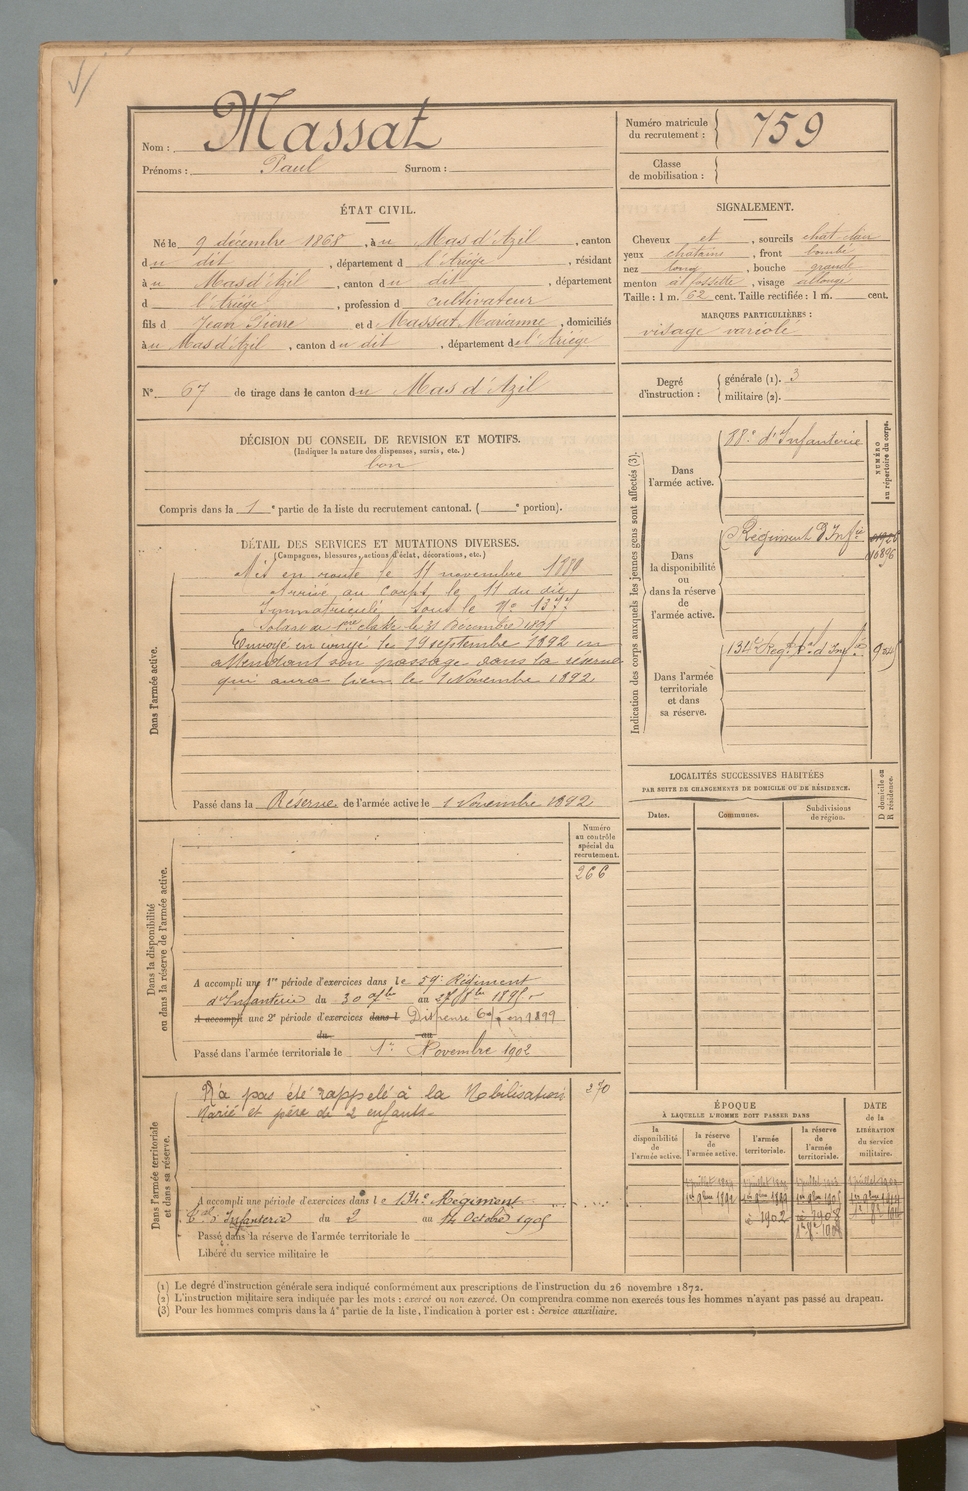 Nom : Massat
Prénoms : Paul Surnom :
Numéro matricule
du recrutement : 759
Classe
de mobilisation :
ÉTAT CIVIL.
Né le 9 décembre 1868, à u Mas d'Azil, canton
du dit, département d l'Ariège, résidant
à u Mas d'Azil, canton du dit, département
d l'Ariège, profession d cultivateur
fils d Jean Pierre et d Massat Marianne, domiciliés
à u Mas d'Azil, canton du dit, département de l'Ariège
N° 67 de tirage dans le canton du Mas d'Azil
SIGNALEMENT.
Cheveux et, sourcils chat. clair
yeux chatains, front bombé
nez long, bouche grande
menton à fossette, visage allongé
Taille : 1 m. 62 cent. Taille rectifiée : 1 m. cent.
MARQUES PARTICULIÈRES :
visage variolé
Degré
d'instruction :
générale (1). 3
militaire (2).
DÉCISION DU CONSEIL DE REVISION ET MOTIFS.
(Indiquer la nature des dispenses, sursis, etc.)
bon
Compris dans la 1e partie de la liste du recrutement cantonal. ( e portion).
DÉTAIL DES SERVICES ET MUTATIONS DIVERSES.
(Campagnes, blessures, actions d'éclat, décorations, etc.)
Dans l'armée active.
Mis en route le 11 novembre 1889
Arrivé au corps le 11 du dit
Immatriculé sous le N°
Soldat de 1ère classe le 31 Décembre 1891
Envoyé en congé le 19 septembre 1892 en
attendant son passage dans la réserve
qui aura lieu le 1 Novembre 1892
Passé dans la Réserve de l'armée active le 1 Novembre 1892
Indication des corps auxquels les jeunes gens sont affectés (3).
NUMÉRO
au répertoire du corps.
Dans
l'armée active.
88e d'Infanterie
Dans
la disponibilité
ou
dans la réserve
de
l'armée active.
Régiment d'Infie
10896
Dans l'armée
territoriale
et dans
sa réserve.
134e Régt Tal d'Infie
LOCALITÉS SUCCESSIVES HABITÉES
PAR SUITE DE CHANGEMENTS DE DOMICILE OU DE RÉSIDENCE.
Dates. Communes. Subdivisions
de région.
D domicile ou
R résidence.
Dans la disponibilité
ou dans la réserve de l'armée active.
Numéro
au contrôle
spécial du
recrutement.
266
A accompli un 1re période d'exercices dans le 59e Régiment
d'Infanterie du 30 7bre au 27 8bre 1895
A accompli une 2e période d'exercices dans l Dispensé en 1899
du au
Passé dans l'armée territoriale le 1er Novembre 1902
Dans l'armée territoriale
et dans sa réserve.
N'a pas été rappelé à la Mobilisation
Marié et père de 2 enfants
270
A accompli une période d'exercices dans l e 134e Régiment
Tal d'Infanterie du 2 au 14 Octobre 1905
Passé dans la réserve de l'armée territoriale le
Libéré du service militaire le
ÉPOQUE
À LAQUELLE L'HOMME DOIT PASSER DANS
la
disponibilité
de
l'armée active.
la réserve
de
l'armée active.
l'armée
territoriale.
la réserve
de
l'armée
territoriale.
DATE
de la
LIBÉRATION
du service
militaire.
1er 9bre 1892
1902
1908
(1) Le degré d'instruction générale sera indiqué conformément aux prescriptions de l'instruction du 26 novembre 1872.
(2) L'instruction militaire sera indiquée par les mots : exercé ou non exercé. On comprendra comme non exercés tous les hommes n'ayant pas passé au drapeau.
(3) Pour les hommes compris dans la 4e partie de la liste, l'indication à porter est : Service auxiliaire.